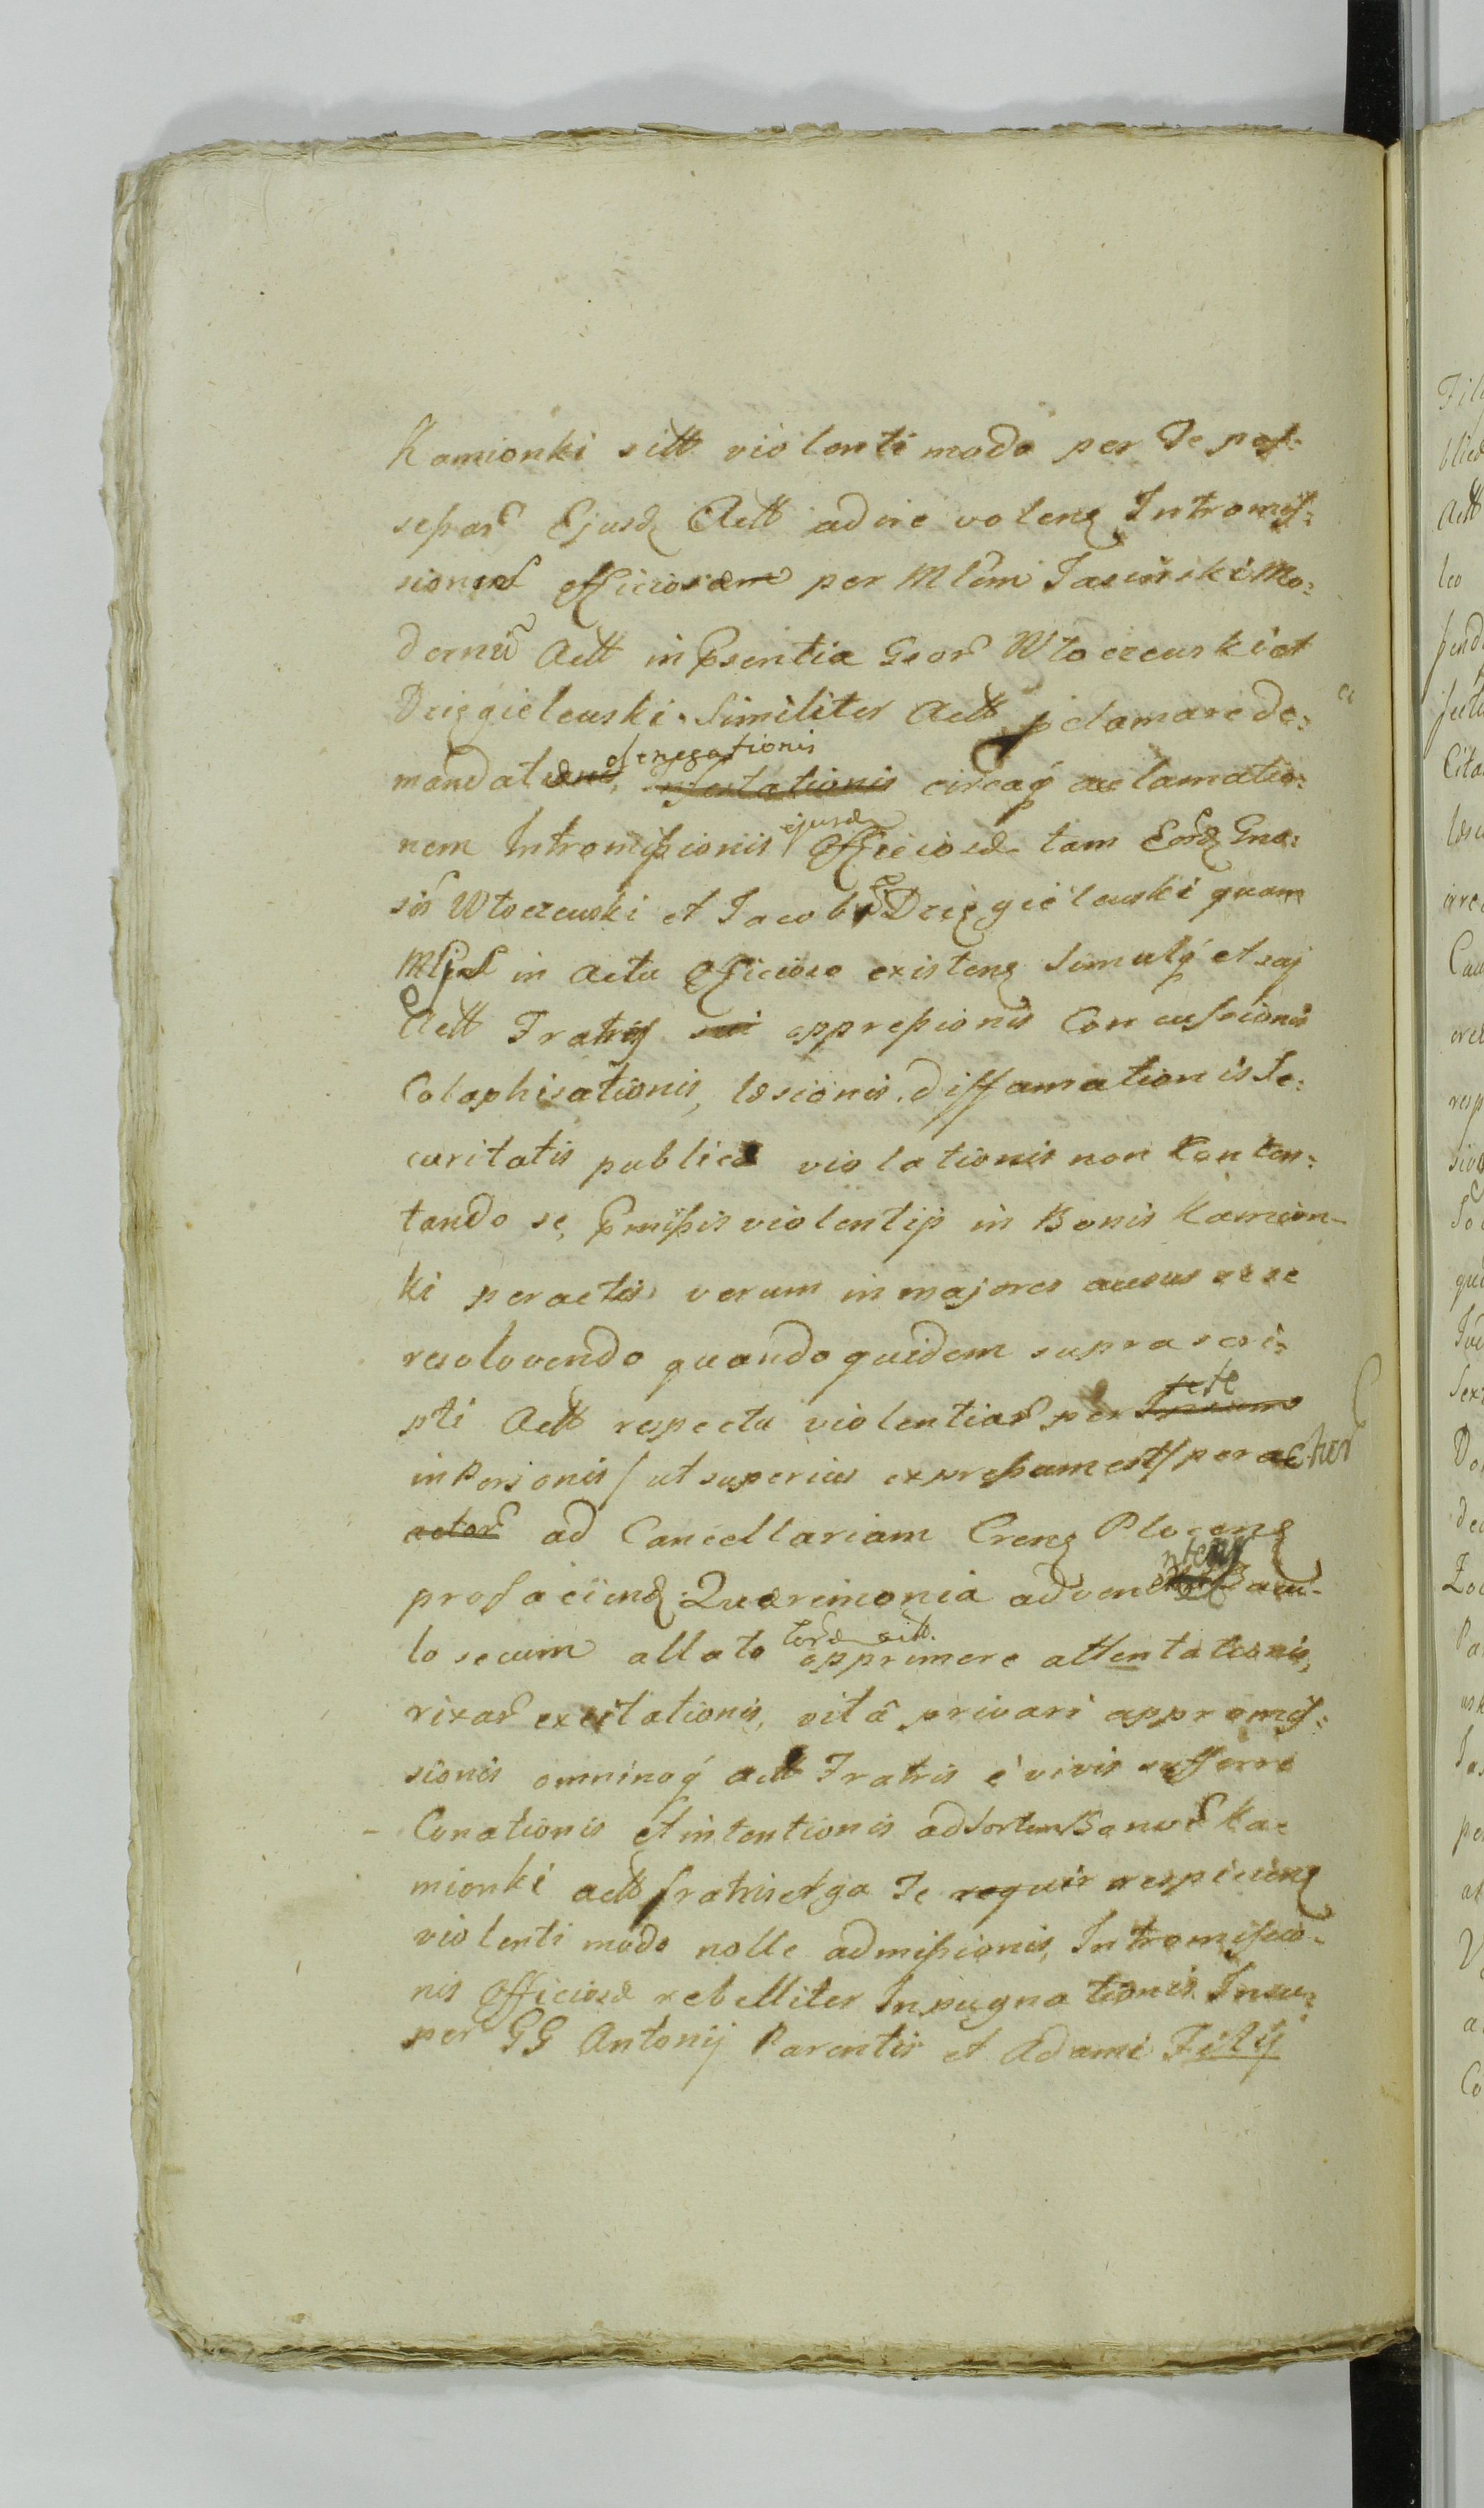 Kamionki sitt violenti modo per Te pos:
sessar Ejusd Actt adire volens Intromis:
sionem officiosam per Mlem Jasieński Mo:
dernũ Actt in Psentia Gsor Włoczewski et
Dzięgielewski. Similiter Actt jclamare de:
mandat denegationis circaq aclamatio:
nem Intromissionis ejusd Officiosæ tam Eord Gno:
sor Włoczewski et Jacobi Dzięgielewski quam
in Actu Officioso existens Simulq et saj
Actt Fratris sui oppressionis Concussionis
Colaphisationis, læsionis, diffamationis Se:
curitatis publicæ violationis non Conten:
tando se, Pmissis violentijs in Bonis Kamion-
ki peractis verum in majores ausus sese
resolvendo quandoquidem suprascri:
pti Actt respectu violentiar per sese Ipsum
in Personis / ut superius expressum est / per actor
actar ad Cancellariam Crens Plocens
profaciend Quærimonia advenientem Bacu-
lo secum allato opprimere attentationis,
rixar excitationis, vitâ privari appromis:
sionis omninoq actt Fratris è vivis sufferre
- Conationis et intentionis ad Sortem Bonor Ka-
mionki actt fratris erga Te respiciens
violenti modo nolle admissionis, Intromissio-
nis Officiosæ rebelliter Inpugnationis. Insu:
per GG Antonij Parentis et Adami Filij